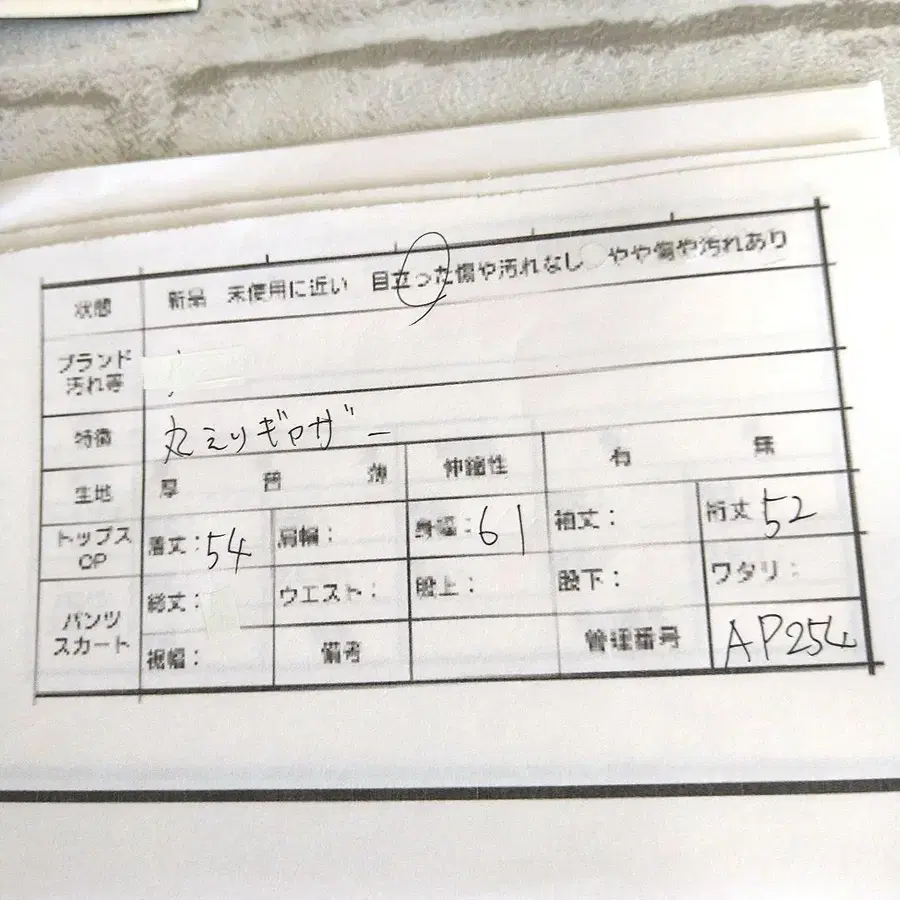 状態 新品 未使用に近い 目立った傷や汚れなし やや傷や汚れあり
ブランド
汚れ等
特徴 丸えりギャザー
生地 厚 普 薄 伸縮性 有 無
トップス
OP
着丈:54 肩幅: 身幅:61 袖丈: 裄丈 52
パンツ
スカート
総丈: ウエスト: 股上: 股下: ワタリ:
裾幅: 備考 管理番号 AP254